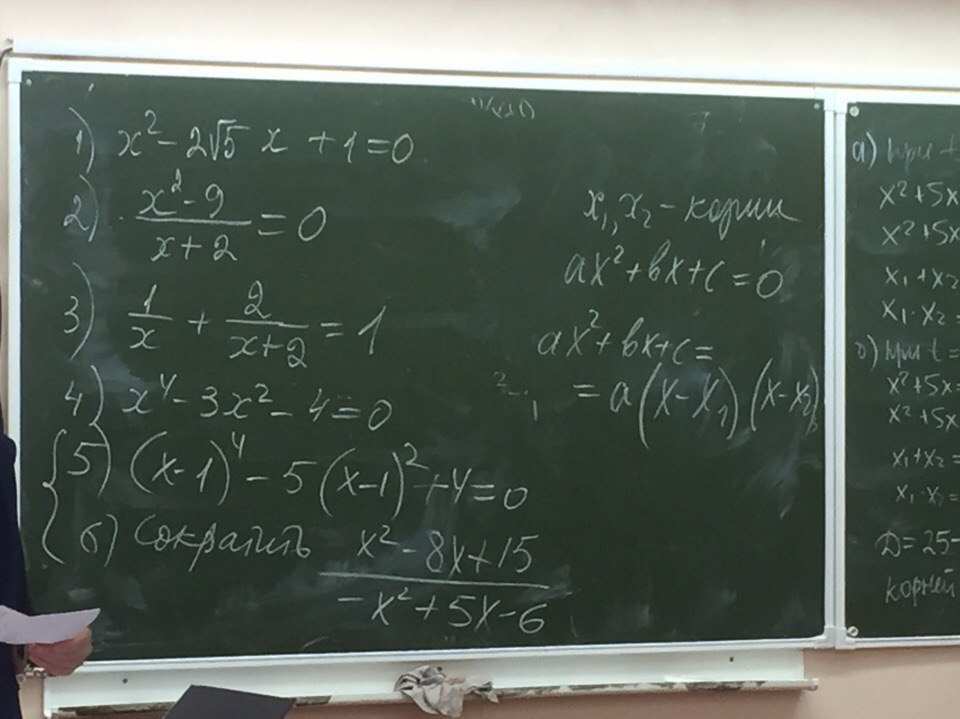 1) x² - 2√5 x + 1 = 0
2) (x² - 9)/(x + 2) = 0
3) 1/x + 2/(x+2) = 1
4) x⁴ - 3x² - 4 = 0
5) (x-1)⁴ - 5(x-1)² + 4 = 0
6) Сократить (x² - 8x + 15)/(-x² + 5x - 6)
x₁, x₂ - корни
ax² + bx + c = 0
ax² + bx + c =
= a(x - x₁)(x - x₂)
а) при t
x² + 5x
x² + 5x
x₁ + x₂
x₁ · x₂ =
б) при t =
x² + 5x =
x² + 5x
x₁ + x₂ =
x₁ · x₂ =
D = 25 -
корней